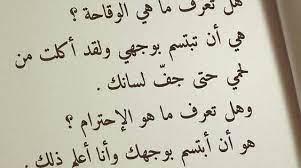 هل تعرف ما هي الوقاحة ؟
هي أن تبتسم بوجهي ولقد أكلت من
لحمي حتى جفّ لسانك .
وهل تعرف ما هو الإحترام ؟
هو أن أبتسم بوجهك وأنا أعلم ذلك .